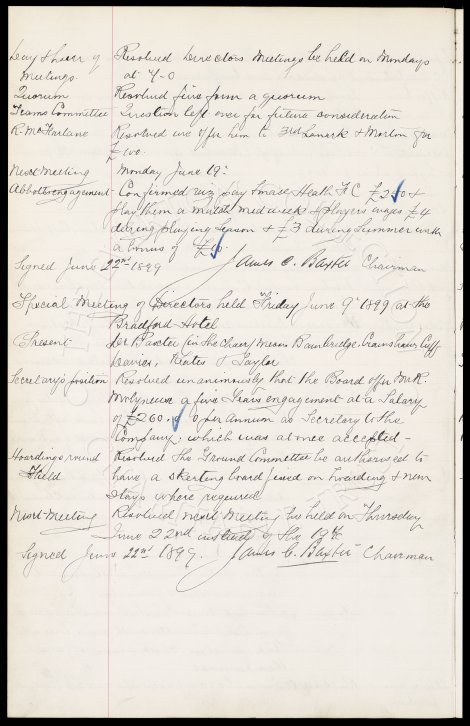 Day & hour of Resolved Directors Meetings be held on Mondays
Meetings at 7-0
Quorum Resolved five form a quorum
Teams Committee Question left over for future consideration
R. McFarlane Resolved we offer him to 3rd Lanark & Morton for
£100.
Next Meeting Monday June 19th
Abbotts engagement - Confirmed viz pay Small Heath F.C. £250 &
play them a match midweek & players wages £4
during playing season & £3 during summer with
a bonus of £10.
Signed June 22nd 1899 James C. Baxter Chairman
Special Meeting of Directors held Friday June 9th 1899 at the
Bradford Hotel
Present Dr Baxter (in the Chair) Messrs Bainbridge, Crans Cuff
Davies, Keates & Taylor
Secretary's position Resolved unanimously that the Board offer Mr R.
Molyneux a five Years engagement at a Salary
of £260. per Annum as Secretary to the
Company: which was at once accepted -
Hoardings round Resolved the Ground Committee be authorised to
Field have a skerting board fixed on hoarding & new
stays where required
Next Meeting Resolved next Meeting be held on Thursday
June 22nd instead of the 19th
Signed June 22nd 1899. James C. Baxter Chairman